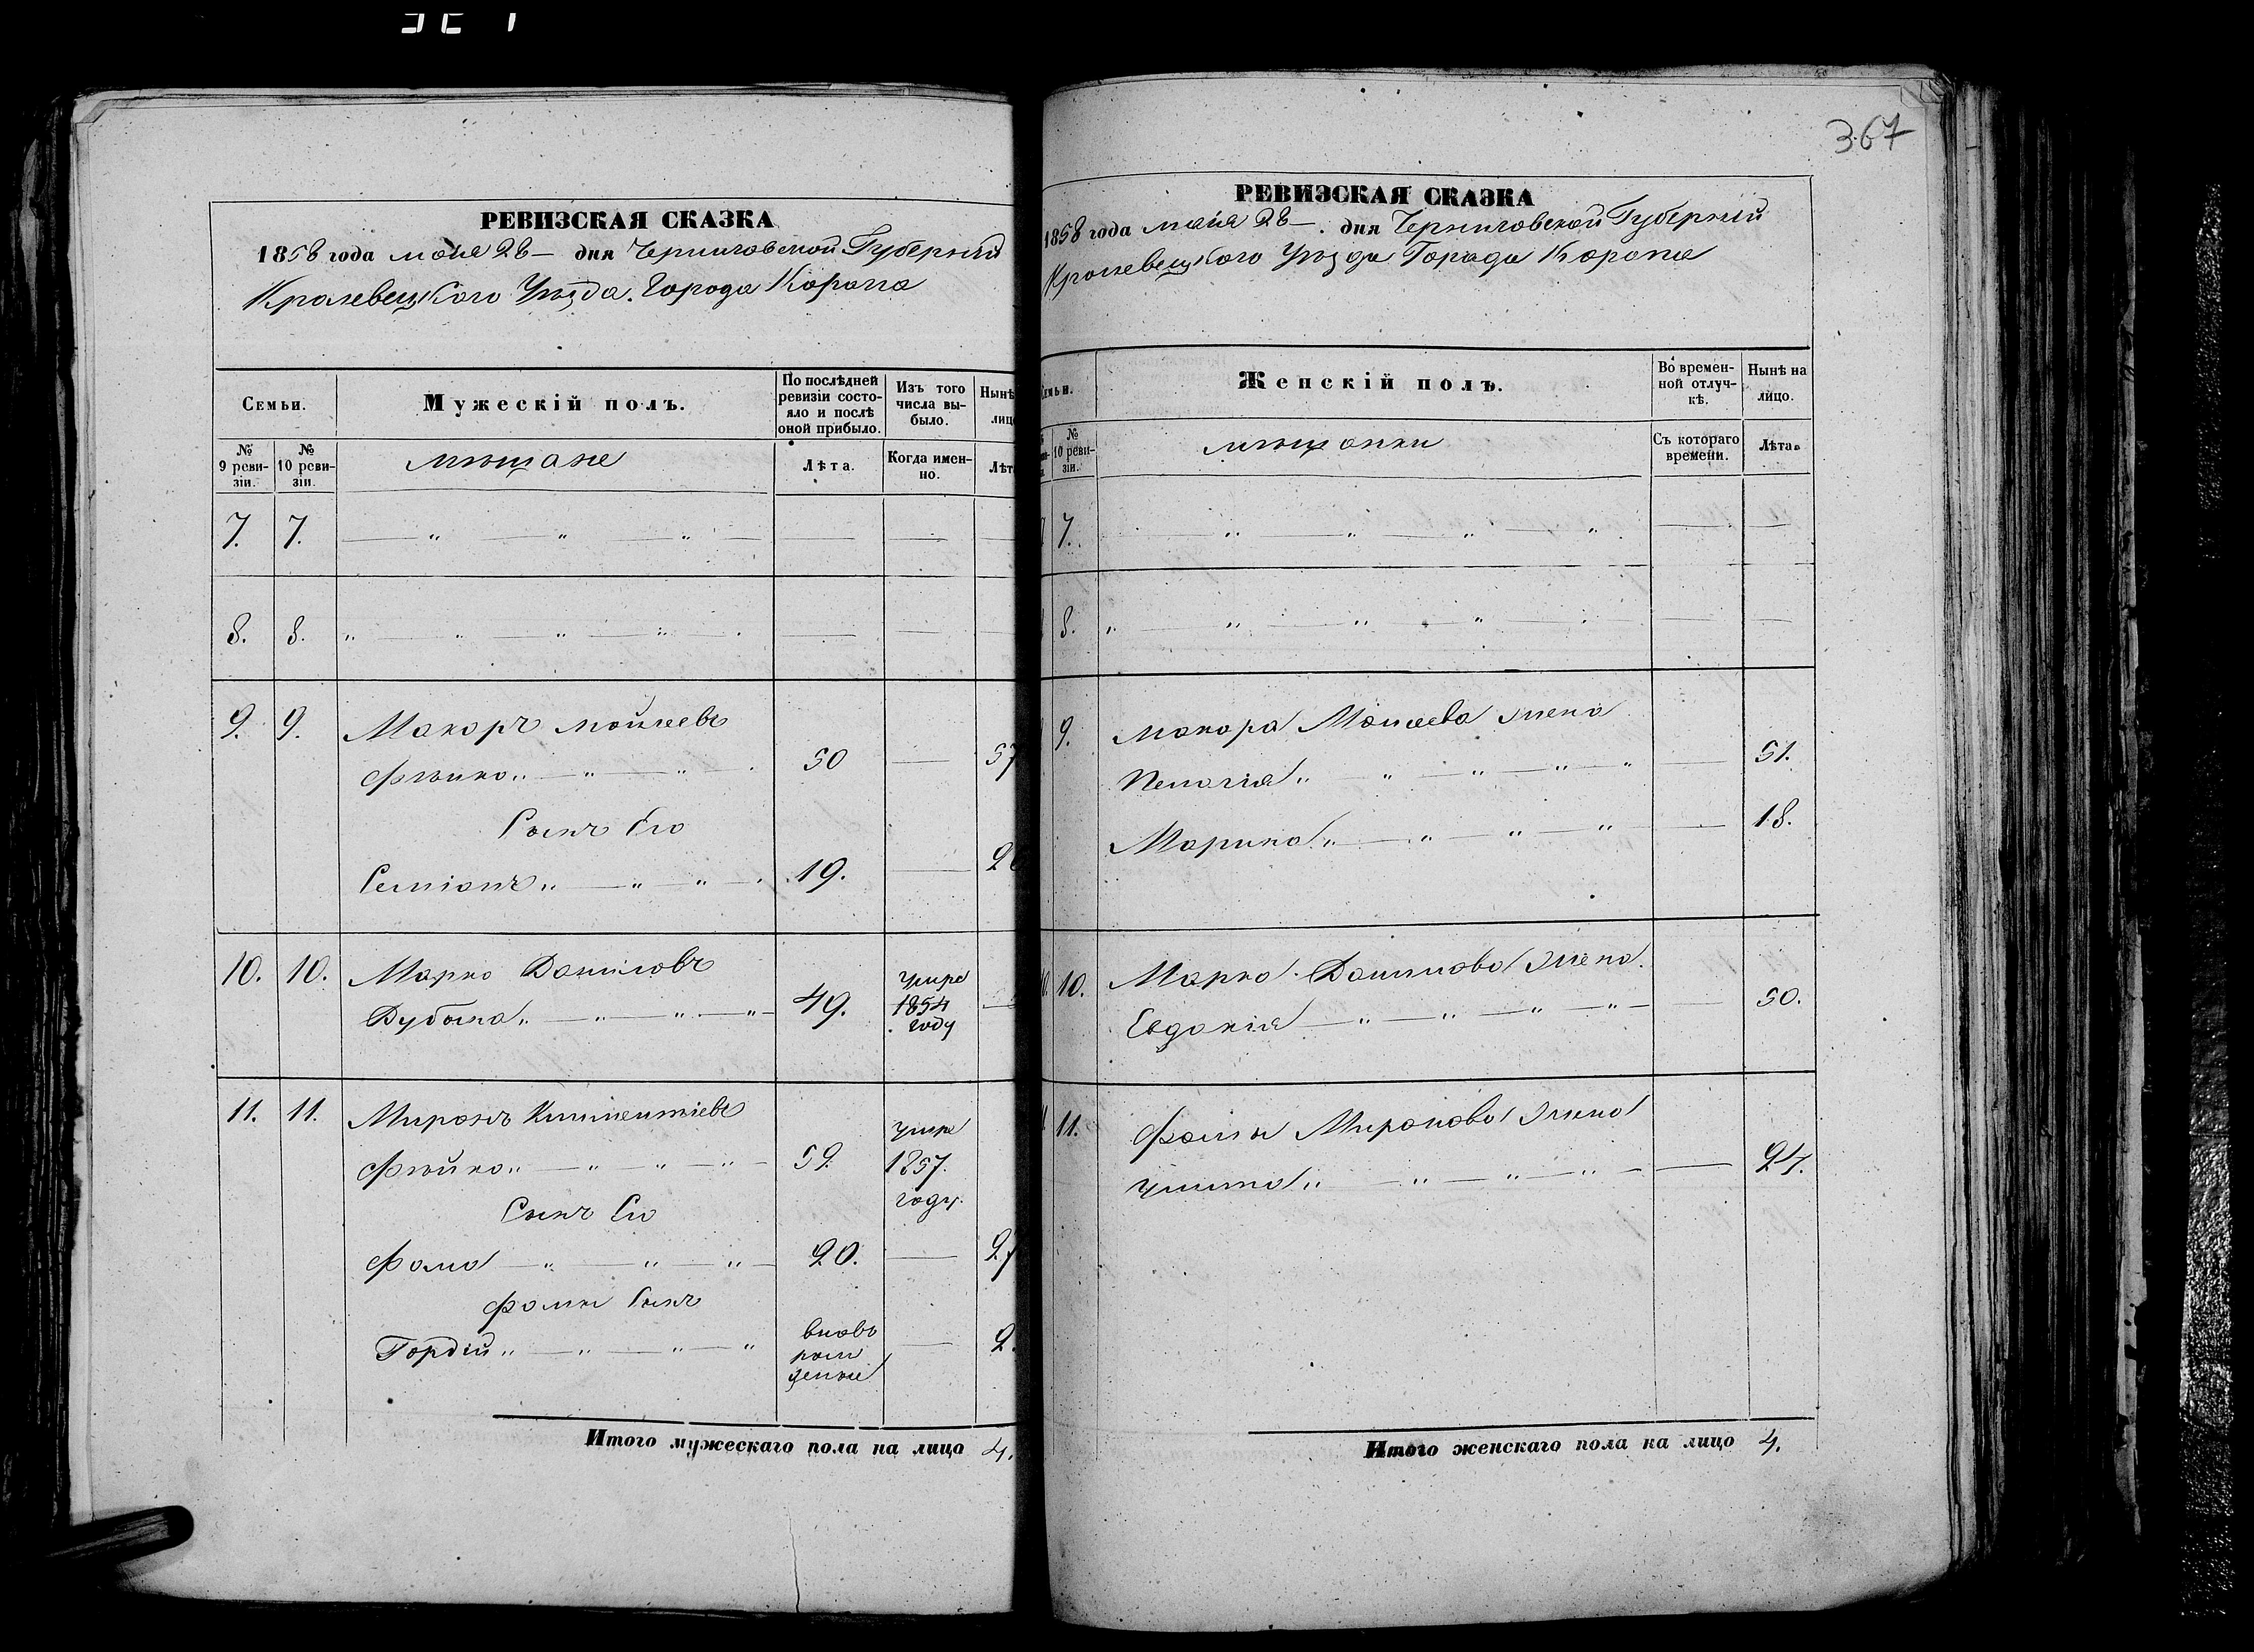 367
РЕВИЗСКАЯ СКАЗКА
1858 года мaiя 28 дня Черниговской Губернiи
Кролевецкого Уѣзда. Города Коропа
Семьи.
Мужескій полъ.
По послѣдней ревизіи состо-
яло и послѣ
оной прибыло.
Изъ того
числа вы-
было.
Нынѣ
лицо
№
9 реви-
зіи.
№
10 реви-
зіи.
мѣщане
Лѣта.
Когда имен-
но.
Лѣт
7. 7.
8. 8.
9. 9. Макаръ Мойсеевъ
50 57
Сынъ Его
Семіонъ 19.
10. 10. Марко Даниловъ
49. умре
1854
году
11. 11. Миронъ
59. умре
1857.
году.
Сынъ Его
Фома 20. 27
Фомы Сынъ
Гордій вновь
рож
денный 2.
Итого мужескаго пола на лицо 4.
РЕВИЗСКАЯ СКАЗКА
1858 года маія 28 дня Черниговской Губерній
Кролевецкого Уѣзда Города Коропа
Семьи.
Женскій полъ.
Во времен-
ной отлуч-
кѣ.
Нынѣ на
лицо.
№
10 реви-
зіи.
мѣщанки
Съ котораго
времени.
Лѣта.
7.
8.
9. Макара Моисеева жена
Пелагія 51.
Марина 18.
10. Марка Данилова жена.
Евдокія 50.
11. Фомы Миронова жена
Улита 24.
Итого женскаго пола на лицо 4.